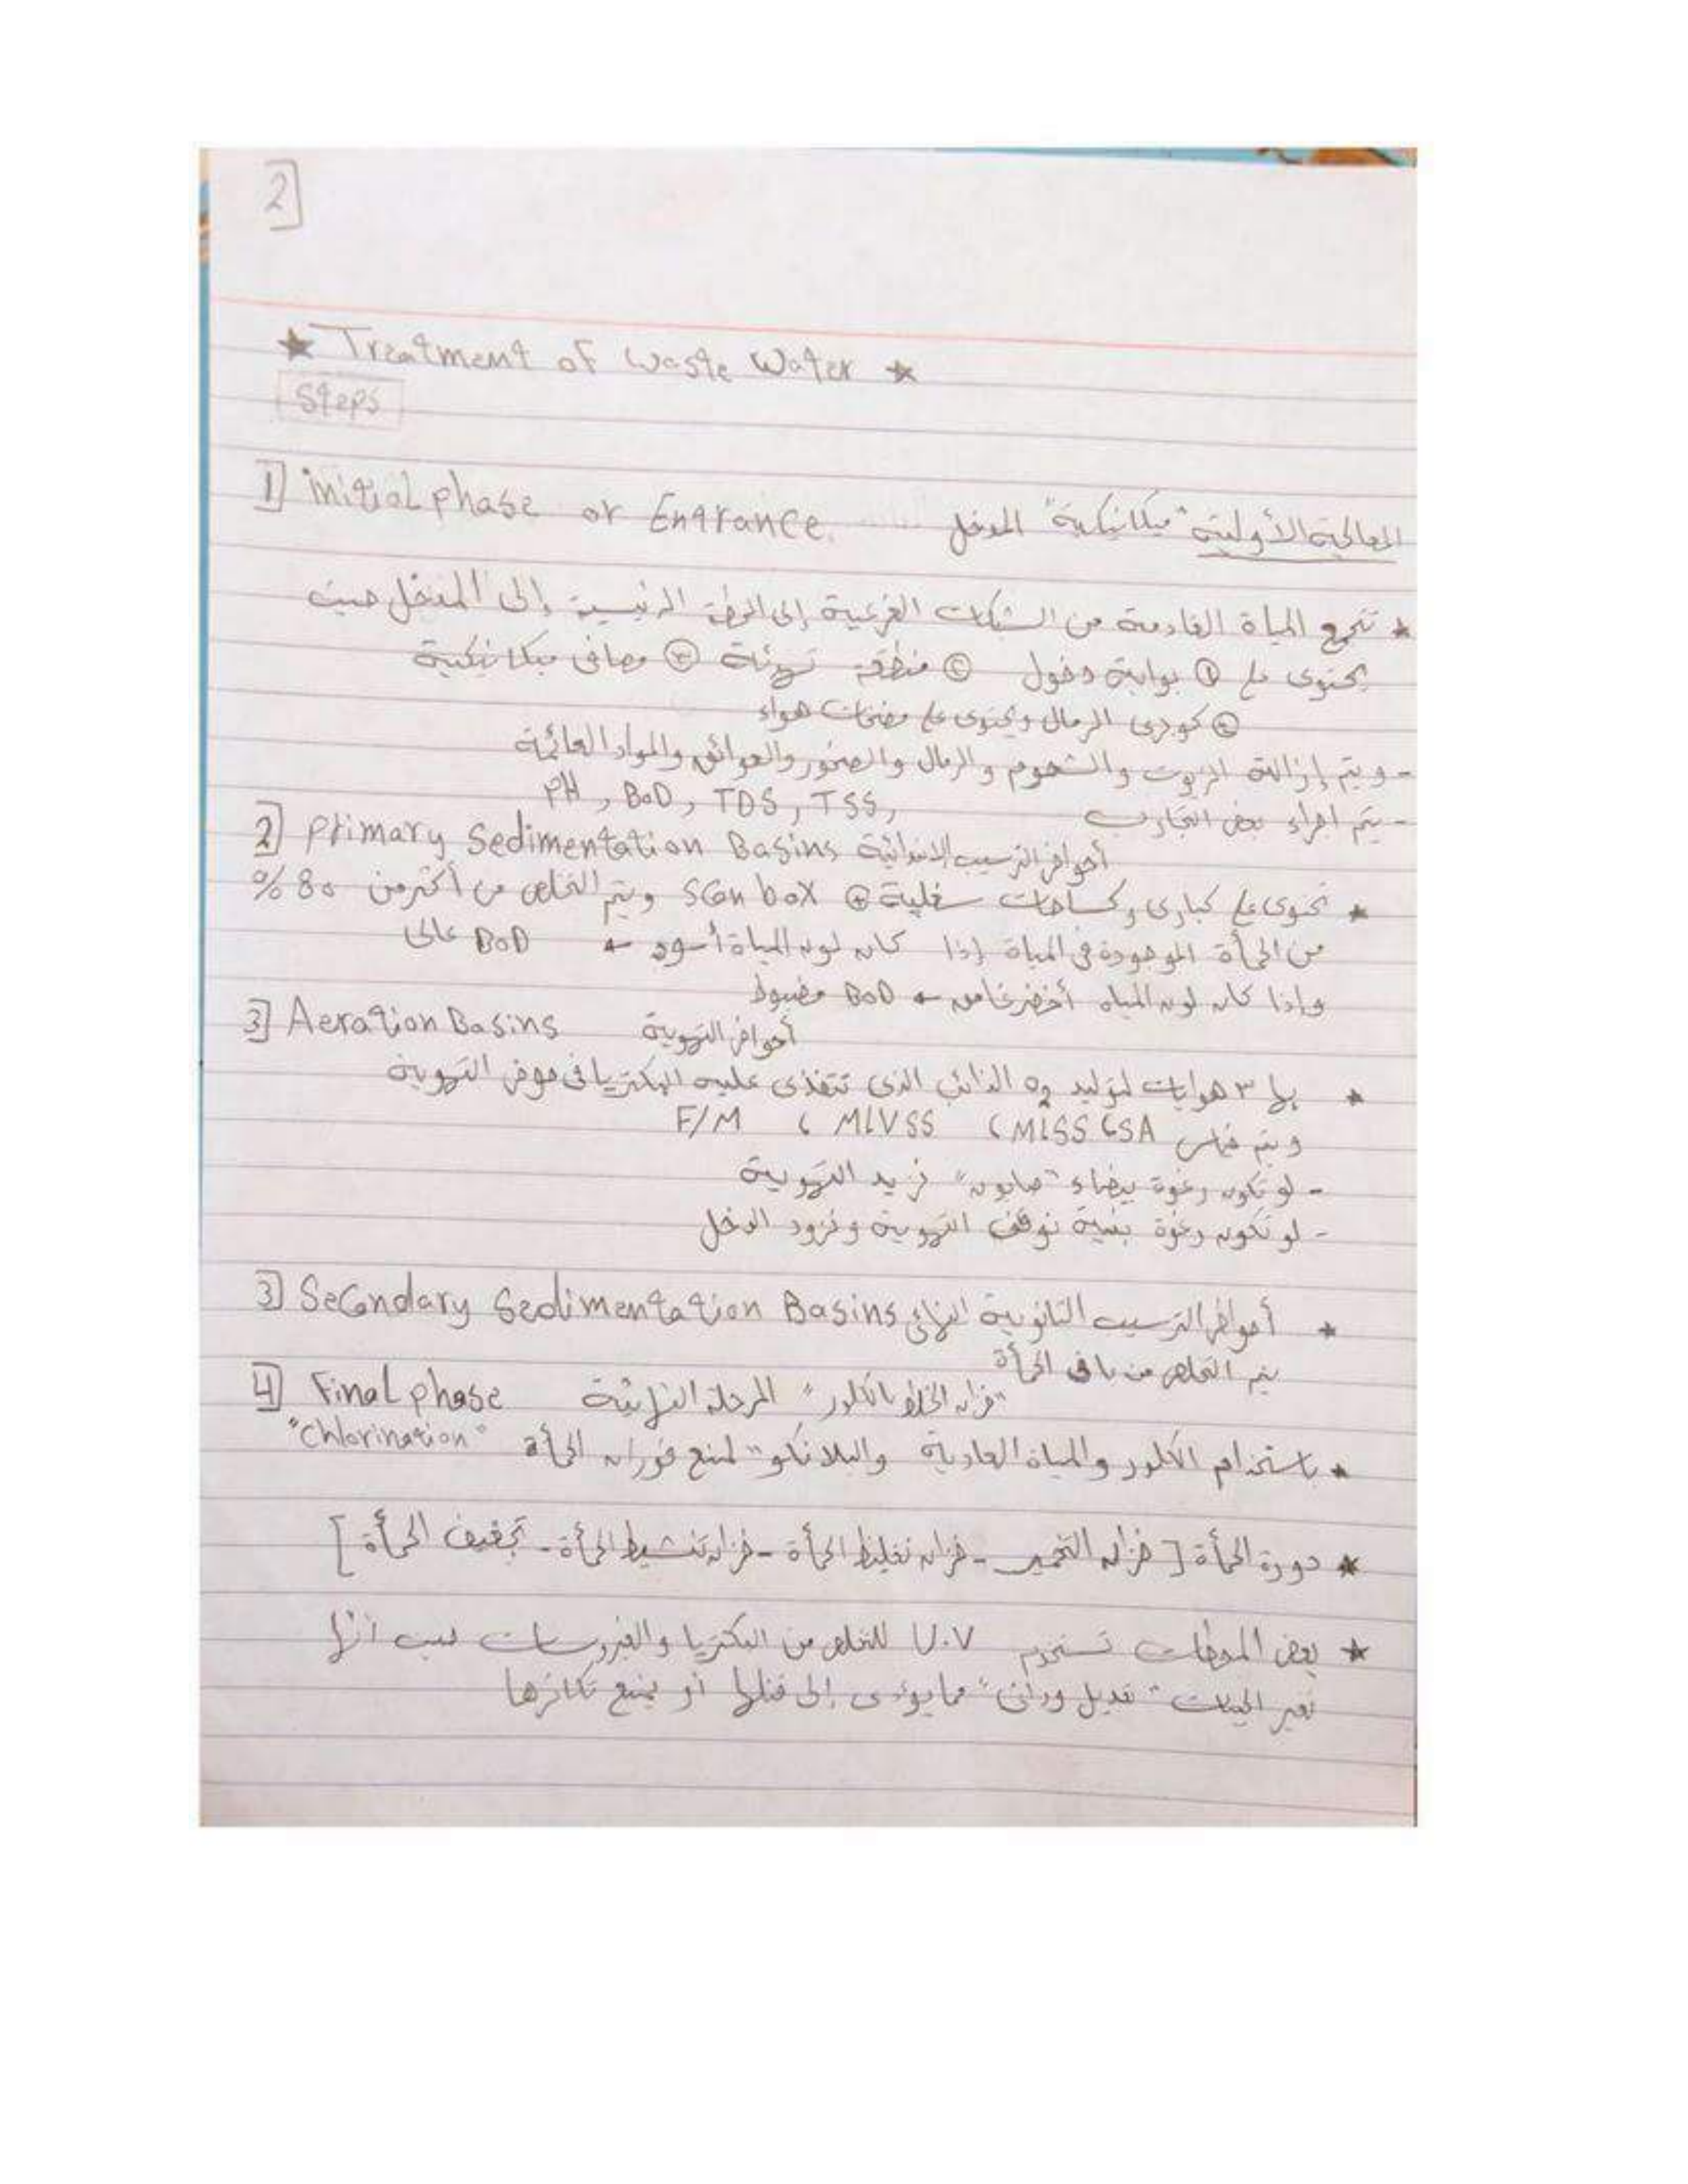 2
★ Treatment of Waste Water ★
Steps
1] initial phase or Entrance المعالجة الأولية "ميكانيكية" المدخل
★ تتجمع المياة القادمة من الشبكات الفرعية إلى المحطة الرئيسية وإلى المدخل حيث
يحتوى على ① بوابة دخول ② منطقة تهدئة ③ مصافى ميكانيكية
④ كوبرى الرمال ويحتوى على مضخات هواء
- ويتم إزالة الزيوت والشحوم والرمال والصخور والعوائق والمواد العائمة
- يتم اجراء بعض التجارب PH, BOD, TDS, TSS,
2] Primary Sedimentation Basins أحواض الترسيب الابتدائية
★ تحتوى على كبارى وكساحات سفلية ⊕ Scon box ويتم التخلص من أكثر من 80 %
من الحمأة الموجودة فى المياة إذا كان لون المياة أسود ← BOD عالى
وإذا كان لون المياه أخضر غامق ← BOD مضبوط
3] Aeration Basins أحواض التهوية
★ بها ٣ هوايات لتوليد O2 الذائب الذى تتغذى عليه البكتريا فى حوض التهوية
ويتم قياس MLSS، SA، MLVSS، F/M
- لو تكون رغوة بيضاء "صابون" نزيد التهوية
- لو تكون رغوة بنية نوقف التهوية ونزود الدخل
3] Secondary Sedimentation Basins أحواض الترسيب الثانوية النهائى ★
يتم التخلص من باقى الحمأة
4] Final phase المرحلة النهائية "خزان الخلط بالكلور"
★ باستخدام الكلور والمياة العادية والبلانكو" لمنع فوران الحمأة "Chlorination"
★ دورة الحمأة [خزان التخمير - خزان تغليظ الحمأة - خزان تنشيط الحمأة - تجفيف الحمأة]
★ بعض المحطات تستخدم U.V للتخلص من البكتريا والفيروسات أنها
تغير الجينات "تعديل وراثى" مما يؤدى إلى قتلها أو يمنع تكاثرها